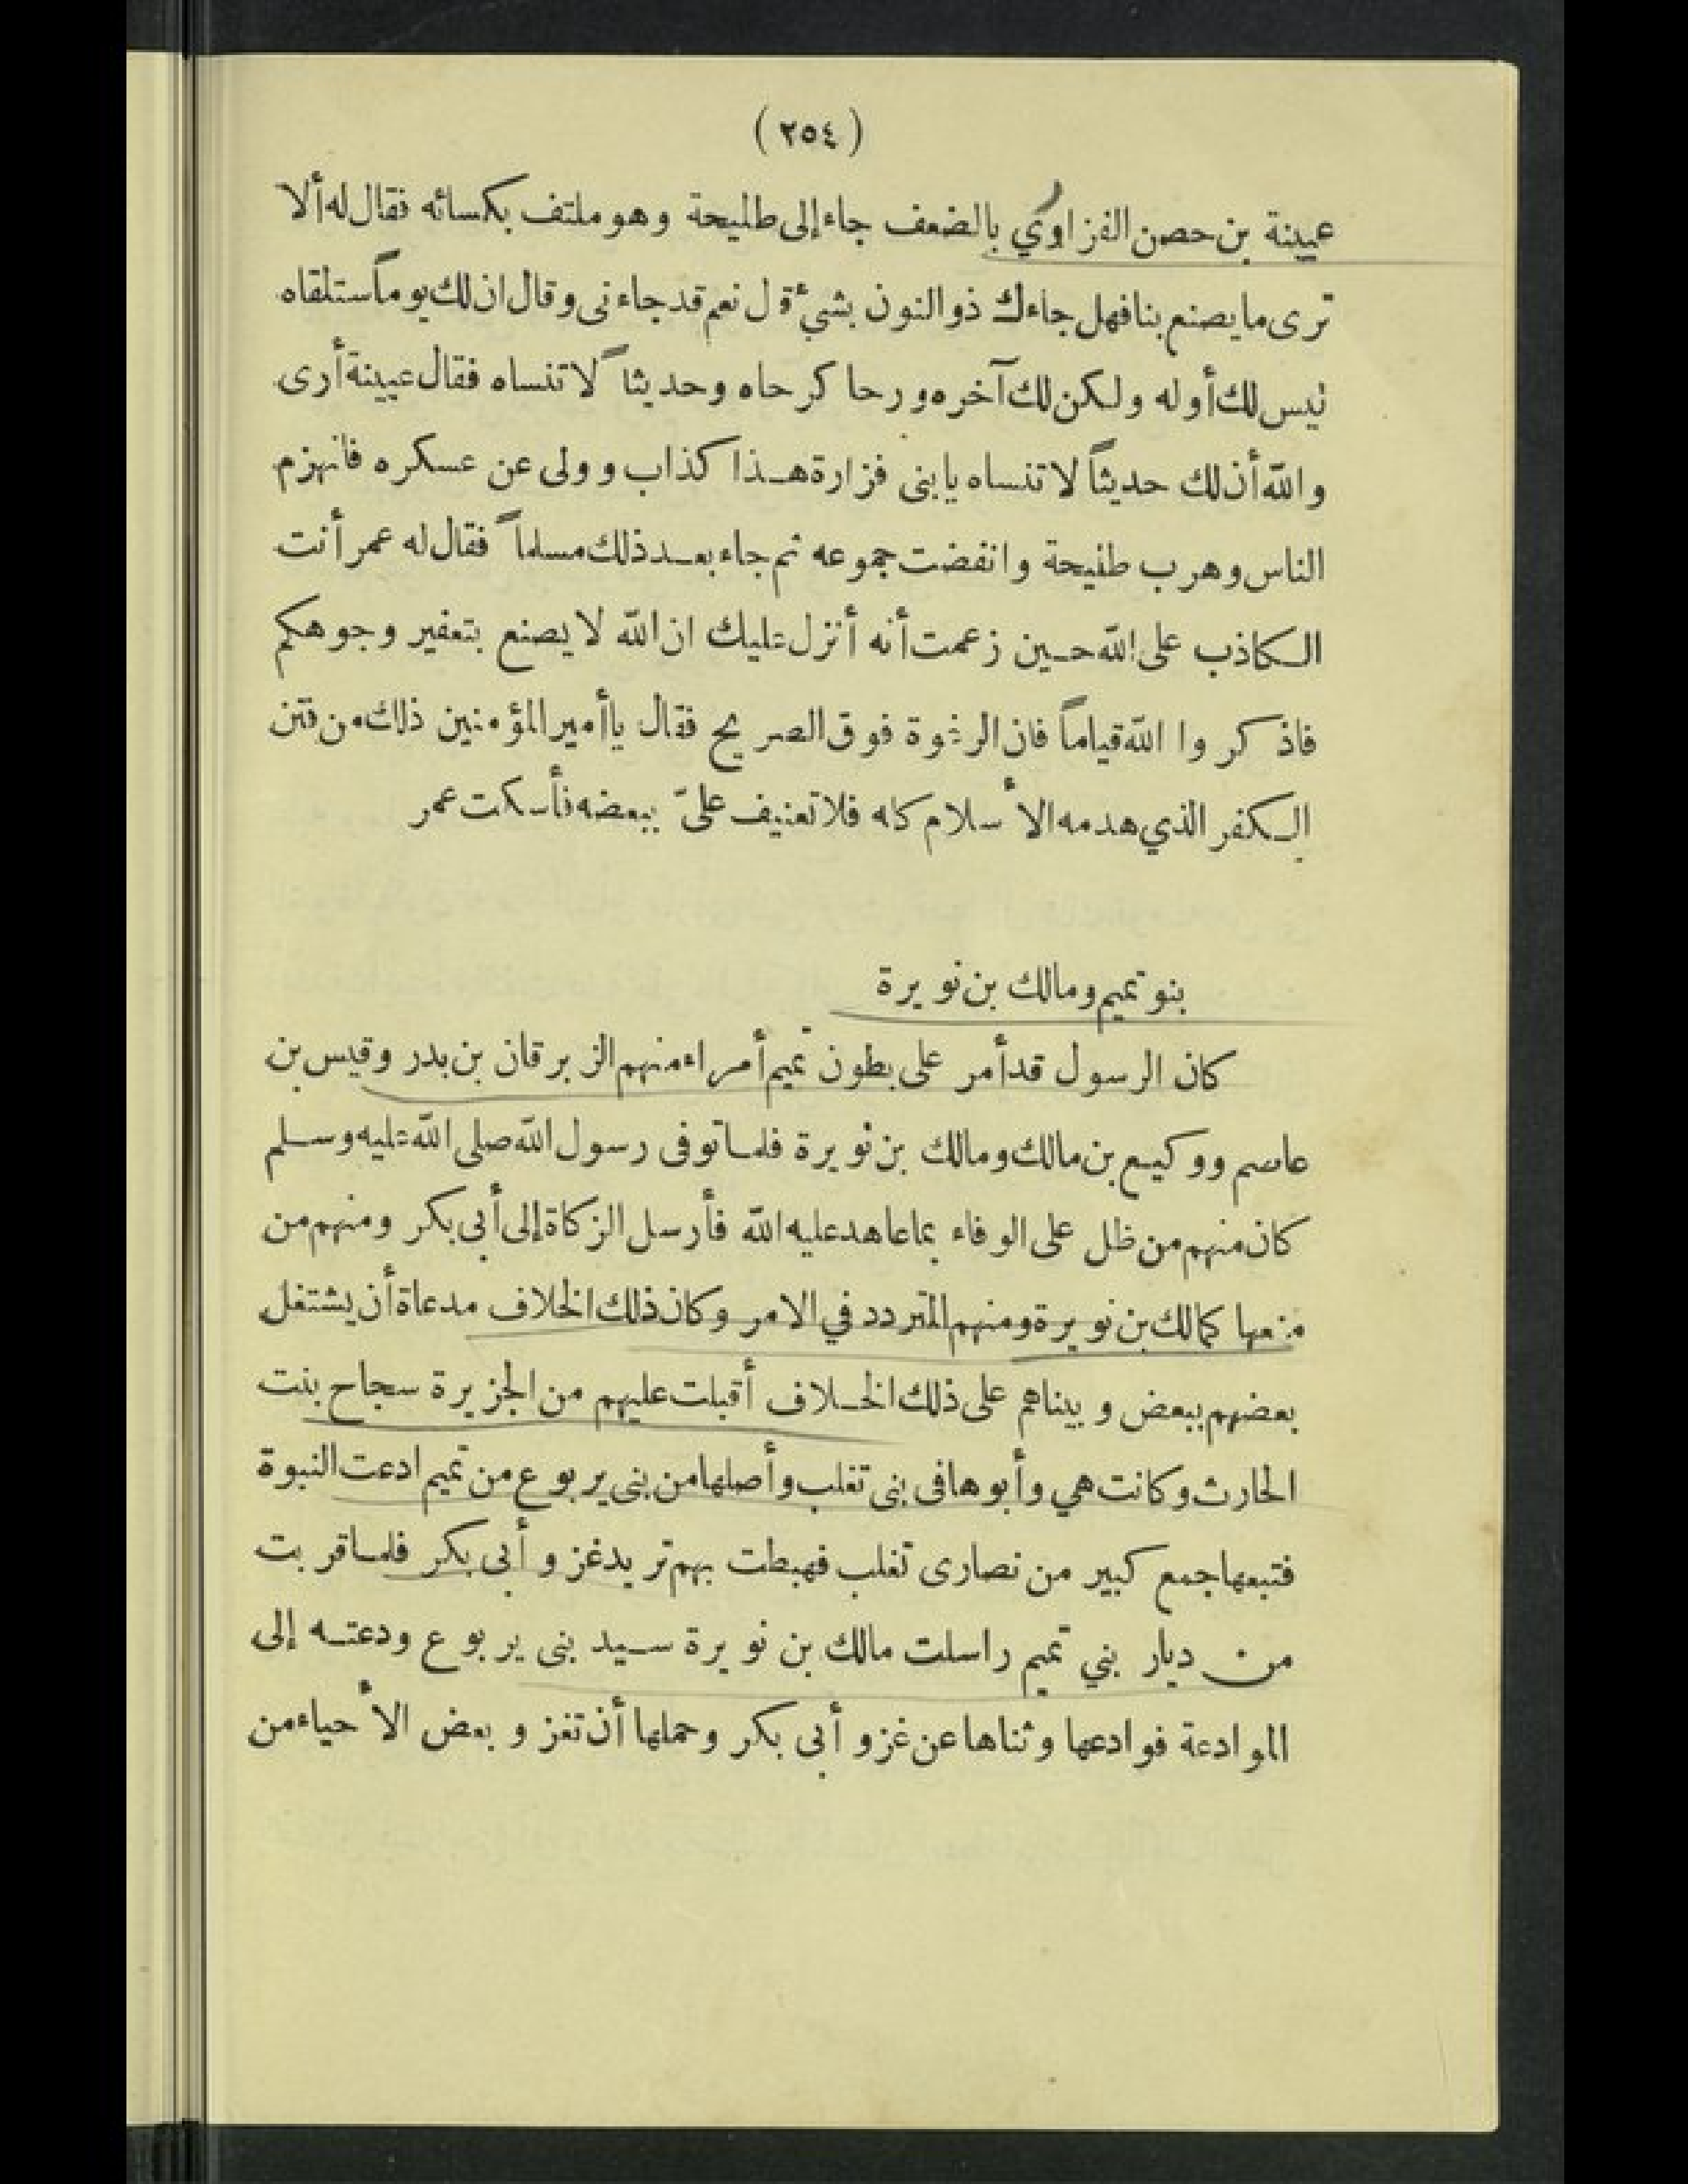 ( ٢٥٤ )
عيينة بن حصن الفزاوي بالضعف جاء إلى طليحة وهو ملتف بكسائه فقال له ألا
ترى ما يصنع بنا فهل جاءك ذو النون بشيء قل نعم قد جاءنى وقال ان لك يوماً ستلقاه
ليس لك أوله ولكن لك آخره ورحا كرحاه وحديثاً لا تنساه فقال عيينة أرى
والله أن لك حديثاً لا تنساه يا بنى فزارة هذا كذاب وولى عن عسكره فانهزم
الناس وهرب طليحة وانفضت جموعه ثم جاء بعد ذلك مسلماً فقال له عمر أنت
الكاذب على الله حين زعمت أنه أنزل عليك ان الله لا يصنع بتعفير وجوهكم
فاذكروا الله قياماً فان الرغوة فوق الصريح فقال يا أمير المؤمنين ذلك من فتن
الكفر الذي هدمه الأسلام كله فلا تعنيف علىّ ببعضه فأسكت عمر
بنو تميم ومالك بن نويرة
كان الرسول قد أمر على بطون تميم أمراء منهم الزبرقان بن بدر وقيس بن
عاصم ووكيع بن مالك ومالك بن نويرة فلما توفى رسول الله صلى الله عليه وسلم
كان منهم من ظل على الوفاء بما عاهد عليه الله فأرسل الزكاة إلى أبى بكر ومنهم من
منعها كمالك بن نويرة ومنهم المتردد في الامر وكان ذلك الخلاف مدعاة أن يشتغل
بعضهم ببعض وبيناهم على ذلك الخلاف أقبلت عليهم من الجزيرة سجاح بنت
الحارث وكانت هي وأبوها فى بنى تغلب وأصلها من بنى يربوع من تميم ادعت النبوة
فتبعها جمع كبير من نصارى تغلب فهبطت بهم تريد غزو أبى بكر فلما قربت
من ديار بني تميم راسلت مالك بن نويرة سيد بنى يربوع ودعته إلى
الموادعة فوادعها وثناها عن غزو أبى بكر وحملها أن تغزو بعض الأحياء من